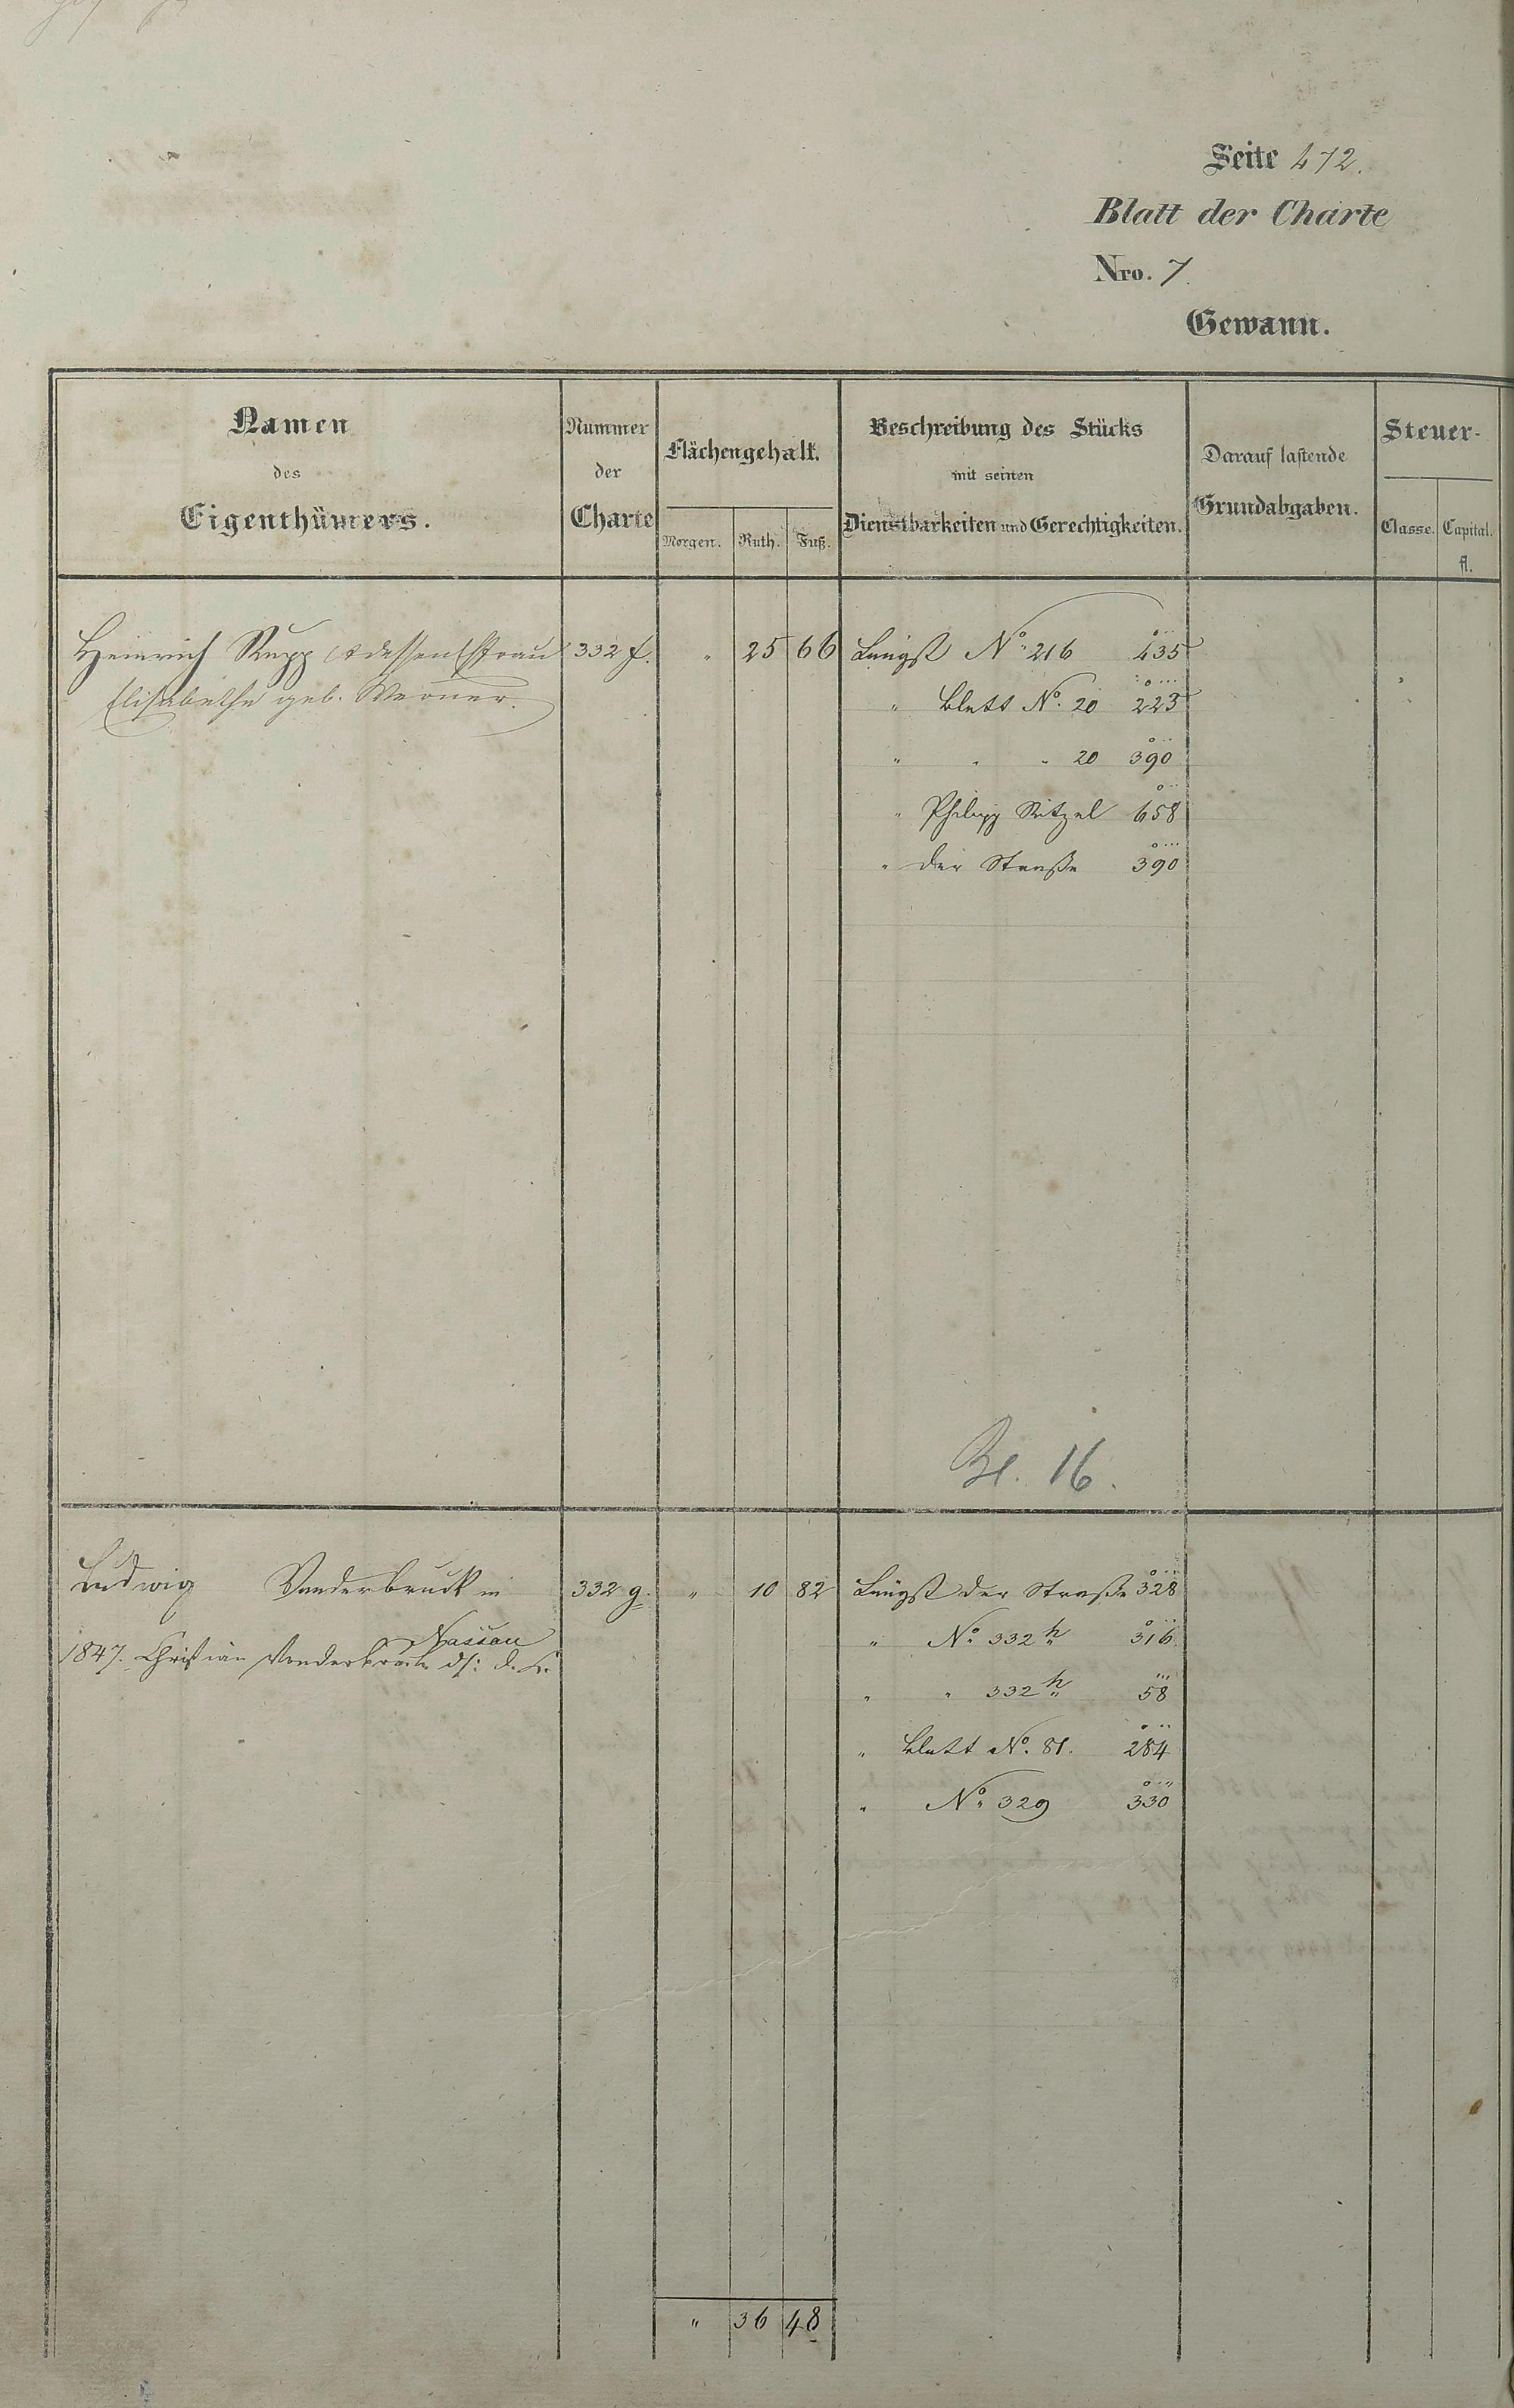 Seite 472.
Blatt der Charte
Nro. 7.
Gewann.
Namen des Eigenthümers.
Nummer der Charte
Flächengehalt.
Morgen. Ruth. Fuß.
Beschreibung des Stücks mit seinen Dienstbarkeiten und Gerechtigkeiten.
Darauf lastende Grundabgaben.
Steuer-
Classe. Capital.
fl.
Heinrich Rupp & dessen Ehfrau 332 f. " 25 66 Längst No. 216 435
Elisabethe geb. Werner.
" Blatt No. 20 223
" " " 20 390
" Philipp Ritzel 658
" der Straße 390
Bl. 16.
Ludwig Vonderbruck in 332 g. " 10 82 Längst der Straße 328
Nassau
" No. 332 h 316
1847. Christian Vonderbruck
" " 332 h 58
" Blatt No. 81. 284
" No. 329 330
" 36 48